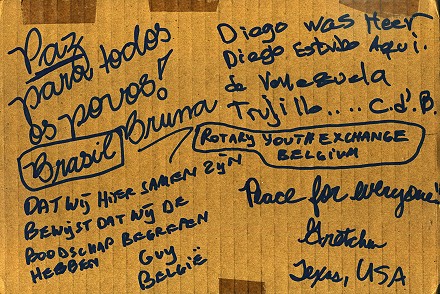 Paz
para todos
os povos!
Brasil Bruna
Diego was Heer
Diego Estubo Aqui.
de Venezuela
Trujillo.... C.d'.B.
ROTARY YOUTH EXCHANGE
BELGIUM
DAT WIJ HIER SAMEN ZIJN
BEWIJST DAT WIJ DE
BOODSCHAP BEGREPEN
HEBBEN
GUY
BELGIË
Peace for everyone!
Gretchen
Texas, USA